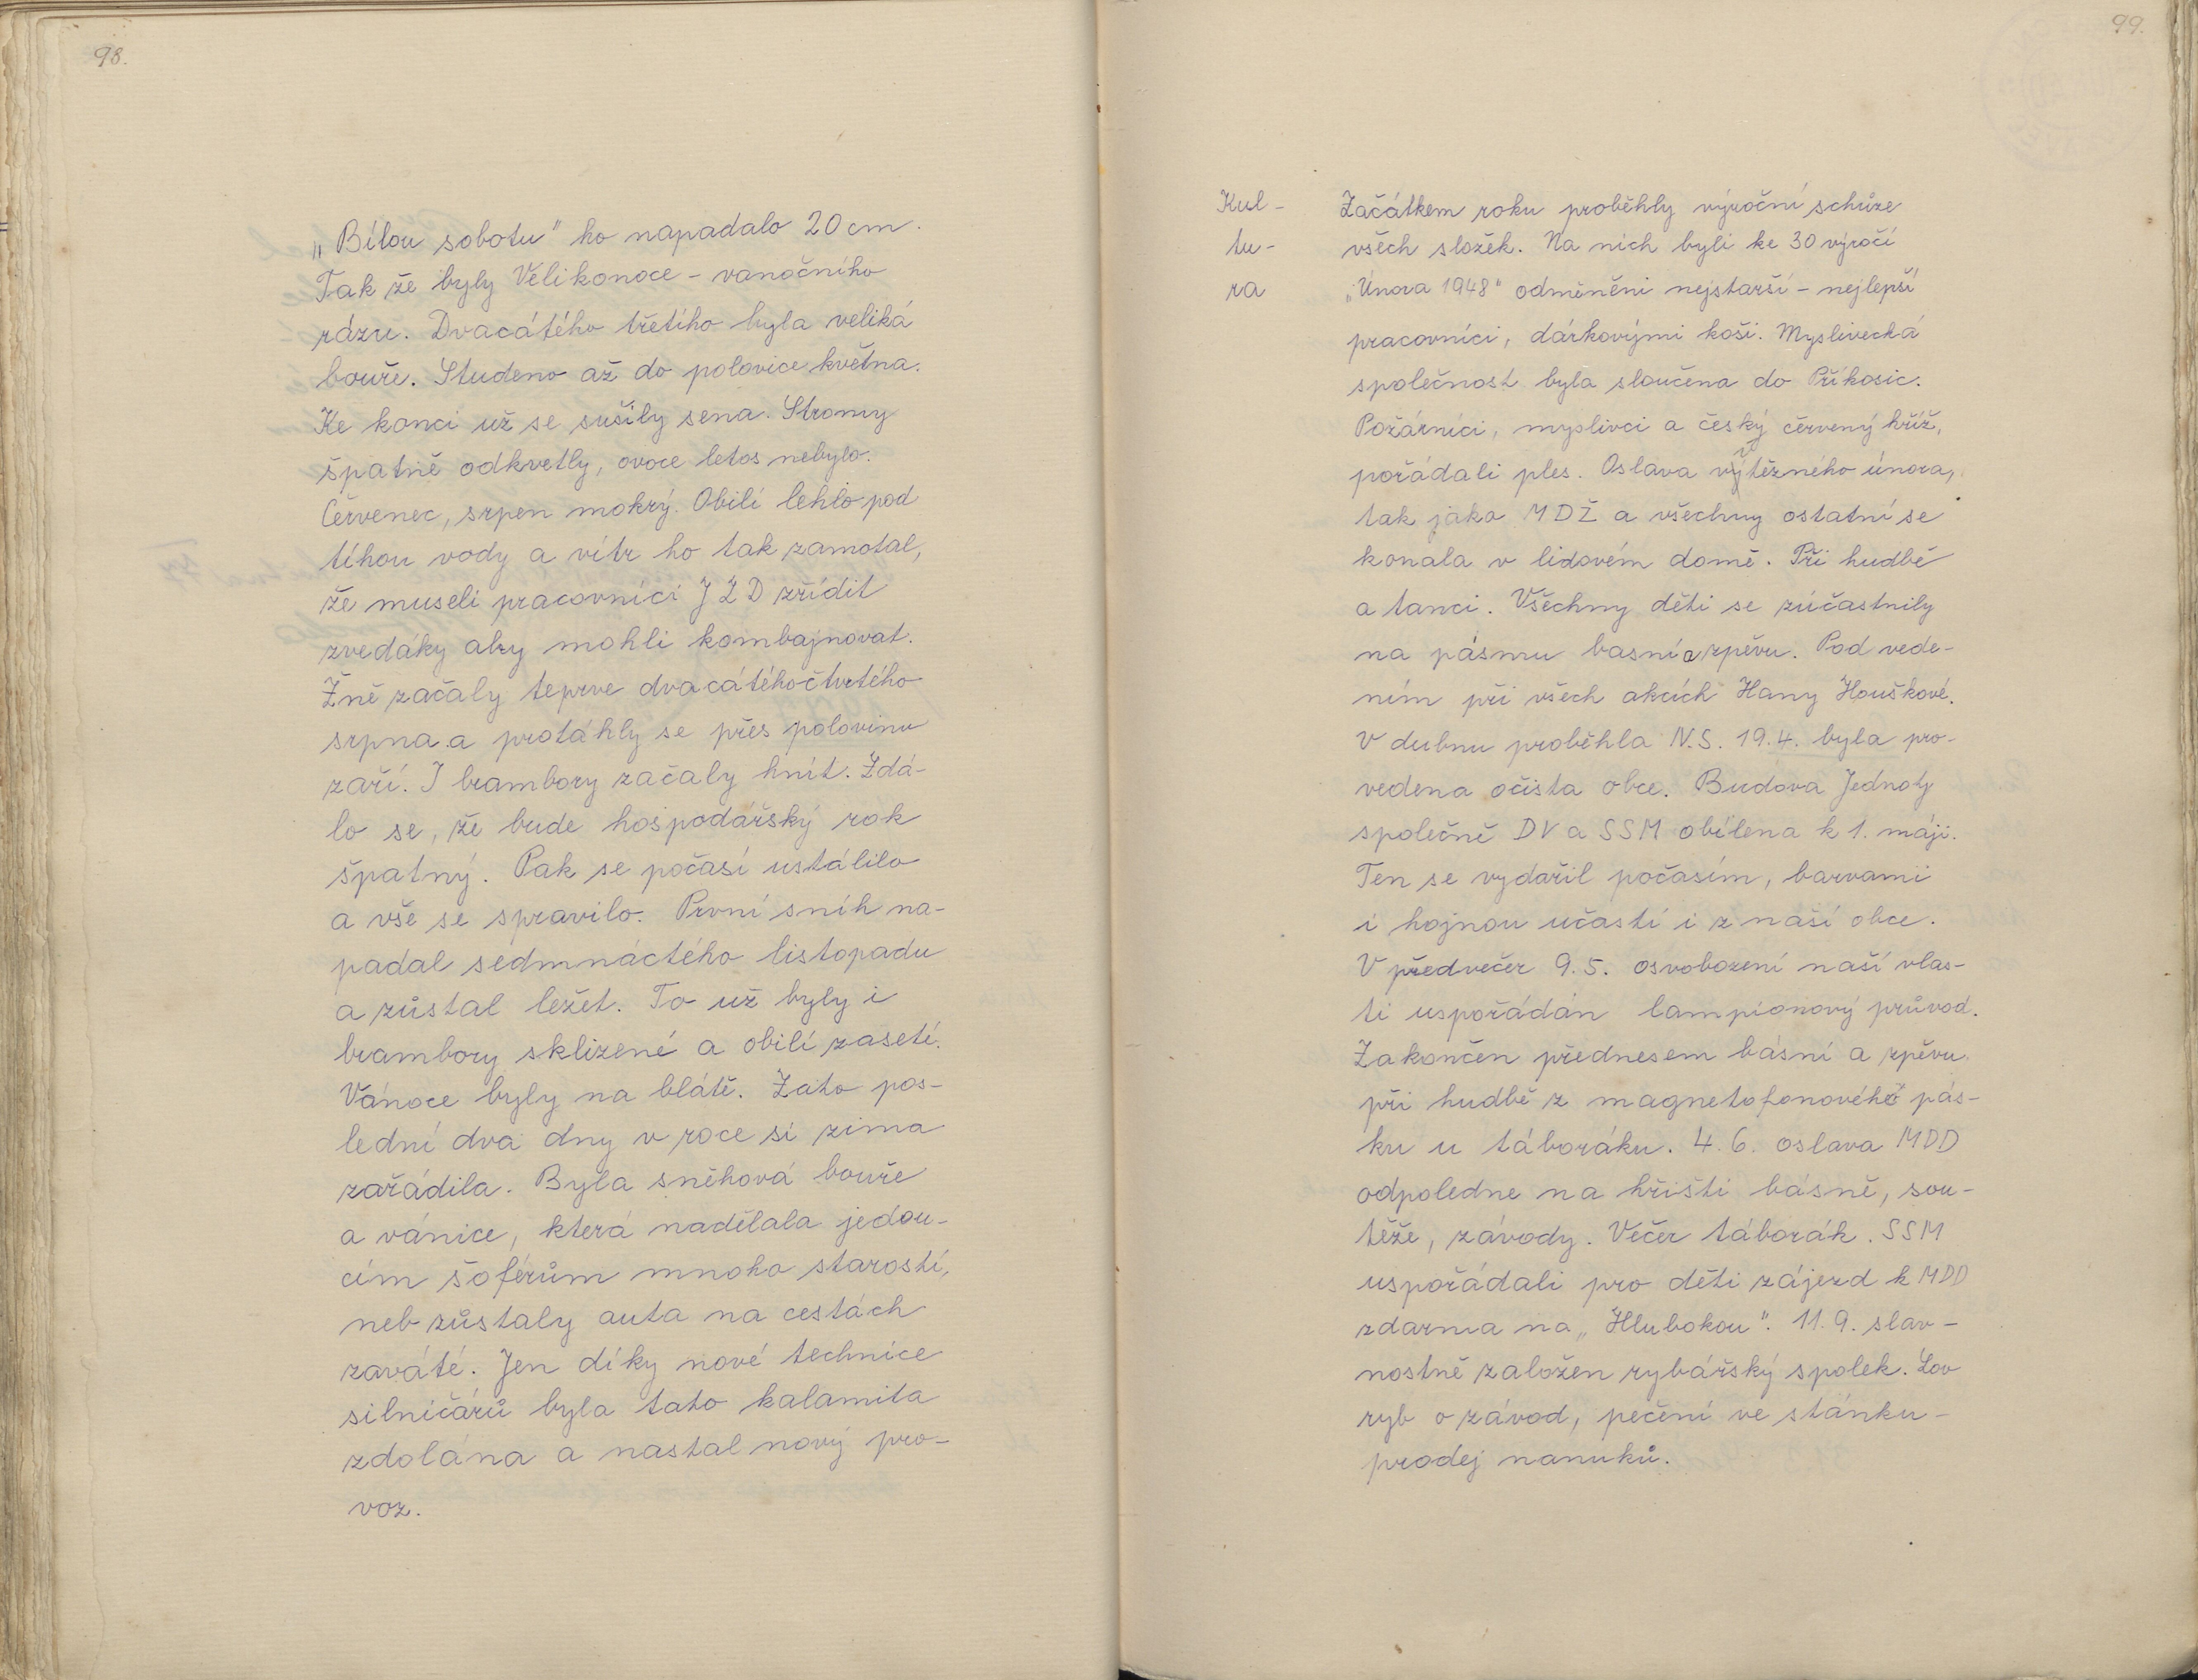 98.
„Bílou sobotu" ho napadalo 20 cm.
Tak že byly Velikonoce - vanočního
rázu. Dvacátého třetího byla veliká
bouře. Studeno až do polovice května.
Ke konci už se sušily sena. Stromy
špatně odkvetly, ovoce letos nebylo.
Červenec, srpen mokrý. Obilí lehlo pod
tíhou vody a vítr ho tak zamotal,
že museli pracovníci JZD zřídit
zvedáky aby mohli kombajnovat.
Žně začaly teprve dvacátéhočtvrtého
srpna a protáhly se přes polovinu
zaří. I brambory začaly hnít. Zdá-
lo se, že bude hospodářský rok
špatný. Pak se počasí ustálilo
a vše se spravilo. První sníh na-
padal sedmnáctého listopadu
a zůstal ležet. To už byly i
brambory sklizené a obilí zaseté.
Vánoce byly na blátě. Zato pos-
lední dva dny v roce si zima
zařádila. Byla sněhová bouře
a vánice, která nadělala jedou-
cím šoférům mnoho starostí,
neb zůstaly auta na cestách
zaváté. Jen díky nové technice
silničářů byla tato kalamita
zdolána a nastal nový pro-
voz.
99.
Kul-
tu-
ra
Začátkem roku proběhly výroční schůze
všech složek. Na nich byli ke 30 výročí
„Února 1948" odměněni nejstarší - nejlepší
pracovníci, dárkovými koši. Myslivecká
společnost byla sloučena do Příkosic.
Požárníci, myslivci a český červený kříž,
pořádali ples. Oslava vítězného února,
tak jako MDŽ a všechny ostatní se
konala v lidovém domě. Při hudbě
a tanci. Všechny děti se zúčastnily
na pásmu basní a zpěvu. Pod vede-
ním při všech akcích Hany Houškové.
V dubnu proběhla N.S. 19.4. byla pro-
vedena očista obce. Budova Jednoty
společně DV a SSM obílena k 1. máji.
Ten se vydařil počasím, barvami
i hojnou učastí i z naší obce.
V předvečer 9.5. osvobození naší vlas-
ti uspořádán lampionový průvod.
Zakončen přednesem básní a zpěvu
při hudbě z magnetofonového pás-
ku u táboráku. 4.6. oslava MDD
odpoledne na hřišti básně, sou-
těže, závody. Večer táborák. SSM
uspořádali pro děti zájezd k MDD
zdarma na „Hlubokou". 11.9. slav-
nostně založen rybářský spolek. Lov
ryb o závod, pečení ve stánku -
prodej nanuků.